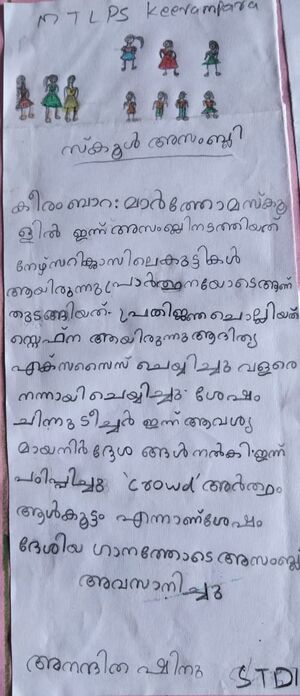 MTLPS Keerampara
സ്കൂൾ അസംബ്ലി
കീരംബാറ: മാർത്തോമ സ്കൂ
ളിൽ ഇന്ന് അസംബ്ലി നടത്തിയത്
നേഴ്സറി ക്ലാസിലെ കുട്ടികൾ
ആയിരുന്നു പ്രാർത്ഥനയോടെ ആണ്
തുടങ്ങിയത്. പ്രതിജ്ഞ ചൊല്ലിയത്
സ്റ്റെഫ്ന ആയിരുന്നു ആദിത്യ
എക്സസൈസ് ചെയ്യിച്ചു വളരെ
നന്നായി ചെയ്യിച്ചു. ശേഷം
ചിന്നു ടീച്ചർ ഇന്ന് ആവശ്യ
മായ നിർദ്ദേശ ങ്ങൾ നൽകി ഇന്ന്
പഠിപ്പിച്ചു 'Crowd' അർത്ഥം
ആൾകൂട്ടം എന്നാണ് ശേഷം
ദേശിയ ഗാനത്തോടെ അസംബ്ലി
അവസാനിച്ചു
അനന്ദിത ഷിനു STD1